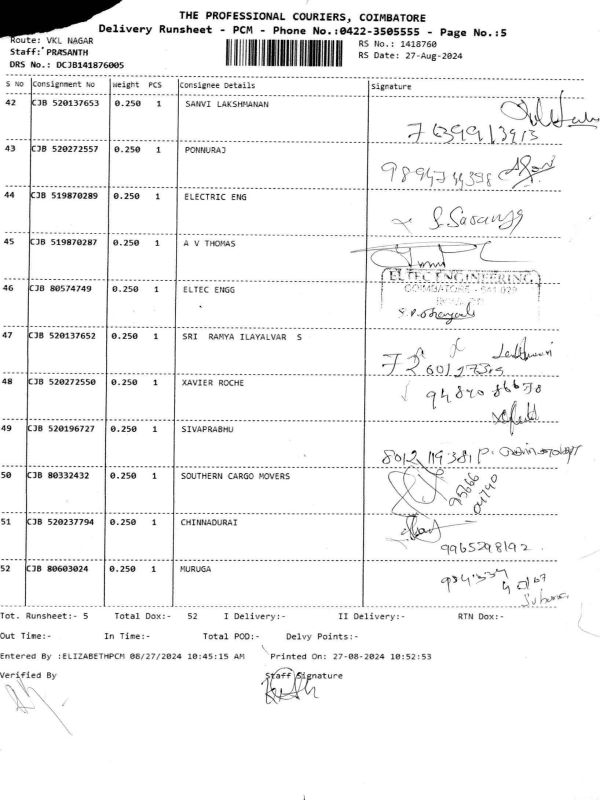 THE PROFESSIONAL COURIERS, COIMBATORE
Delivery Runsheet - PCM - Phone No.:0422-3505555 - Page No.:5
Route: VKL NAGAR
RS No.: 1418760
Staff: PRASANTH
RS Date: 27-Aug-2024
DRS No.: DCJB141876005
S No Consignment No Weight PCS Consignee Details Signature
42 CJB 520137653 0.250 1 SANVI LAKSHMANAN
7639913913
43 CJB 520272557 0.250 1 PONNURAJ
44 CJB 519870289 0.250 1 ELECTRIC ENG
45 CJB 519870287 0.250 1 A V THOMAS
46 CJB 80574749 0.250 1 ELTEC ENGG
ELTEC ENGINEERING
47 CJB 520137652 0.250 1 SRI RAMYA ILAYALVAR S
48 CJB 520272550 0.250 1 XAVIER ROCHE
94870 86678
49 CJB 520196727 0.250 1 SIVAPRABHU
8012 119381
50 CJB 80332432 0.250 1 SOUTHERN CARGO MOVERS
95666
04740
51 CJB 520237794 0.250 1 CHINNADURAI
9965298192
52 CJB 80603024 0.250 1 MURUGA
Tot. Runsheet:- 5 Total Dox:- 52 I Delivery:- II Delivery:- RTN Dox:-
Out Time:- In Time:- Total POD:- Delvy Points:-
Entered By :ELIZABETHPCM 08/27/2024 10:45:15 AM Printed On: 27-08-2024 10:52:53
Verified By Staff Signature